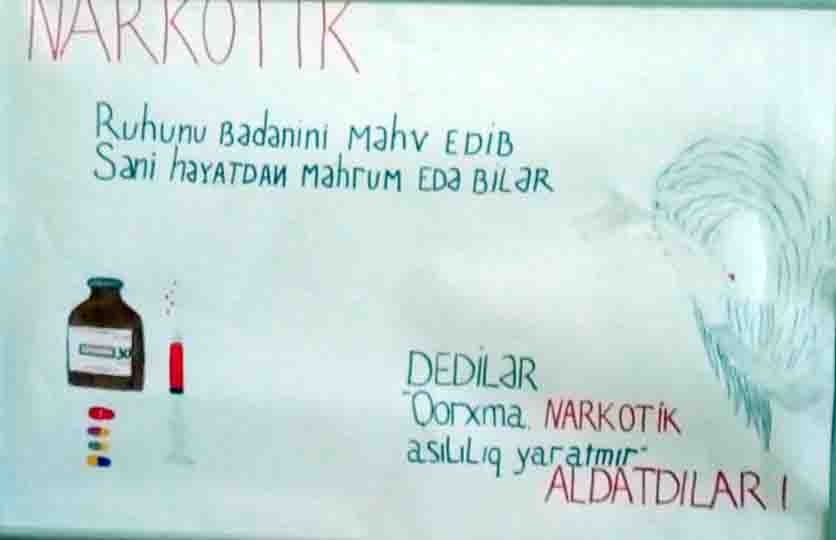 NARKOTİK
Ruhunu Bədənini Məhv EDİB
Səni həYATDAN Məhrum EDə BİLəR
DEDİLəR
"Qorxma. NARKOTİK
asılılıq yaratmır"
ALDATDILAR!